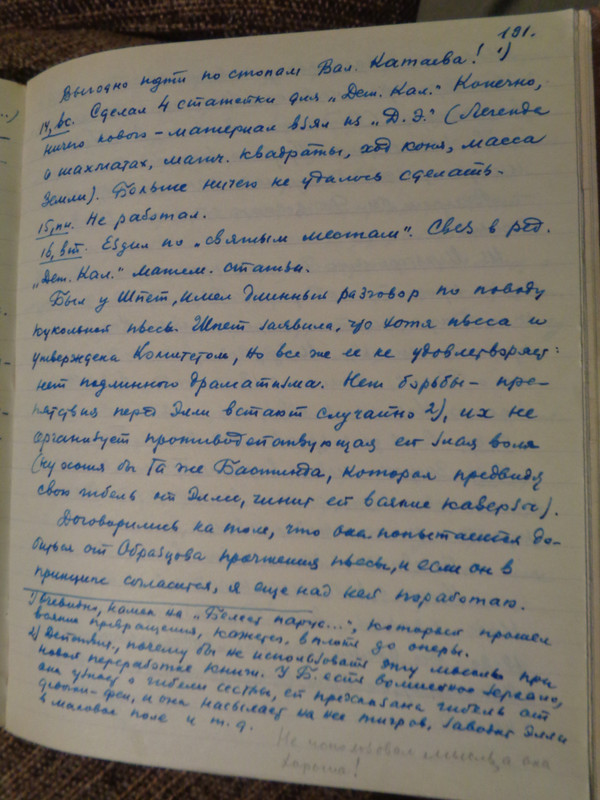 191.
Выгодно идти по стопам Вал. Катаева! 1)
14, вс. Сделал 4 статейки для „Дет. Кал." Конечно,
ничего нового – материал взял из „Д. Э." (Легенда
о шахматах, магич. квадраты, ход коня, масса
Земли). Больше ничего не удалось сделать.
15, пн. Не работал.
16, вт. Ездил по „святым местам". Свез в ред.
„Дет. Кал." матем. статьи.
Был у Шпет, имел длинный разговор по поводу
кукольной пьесы. Шпет заявила, что хотя пьеса и
утверждена Комитетом, но все же ее не удовлетворяет:
нет подлинного драматизма. Нет борьбы – пре-
пятствия перед Элли встают случайно 2), их не
организует противодействующая ей злая воля
(ну хотя бы та же Бастинда, которая предвидя
свою гибель от Элли, чинит ей всякие каверзы).
Договорились на том, что она попытается до-
биться от Образцова прочтения пьесы, и если он в
принципе согласится, я еще над ней поработаю.
1) Очевидно, намек на „Белеет парус...", который прошел
всякие превращения, кажется, вплоть до оперы.
2) Действит., почему бы не использовать эту мысль при
новой переработке книги. У Б. есть волшебное зеркало,
она узнает о гибели сестры, ей предсказана гибель от
девочки-феи, и она насылает на нее тигров, заводит Элли
в маковое поле и т. д.
Не использовал мысль, а она
хороша!